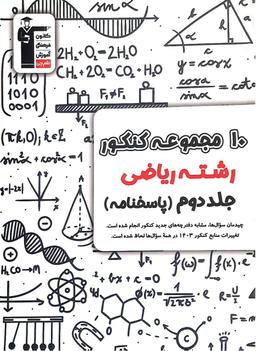 کانون
فرهنگی
آموزش
قلم‌چی
sin α
2H₂+O₂=2H₂O
CH₄+2O₂=CO₂+H₂O
1110
1010
0001
F₁≠F₂
y=cosx
۱۰ مجموعه کنکور
رشته ریاضی
جلد دوم (پاسخنامه)
چیدمان سؤال‌ها، مشابه دفترچه‌های جدید کنکور انجام شده است.
تغییرات منابع کنکور ۱۴۰۳ در همهٔ سؤال‌ها لحاظ شده است.
(πk,0); k∈Z
y=|-2x|
H₂CO→M